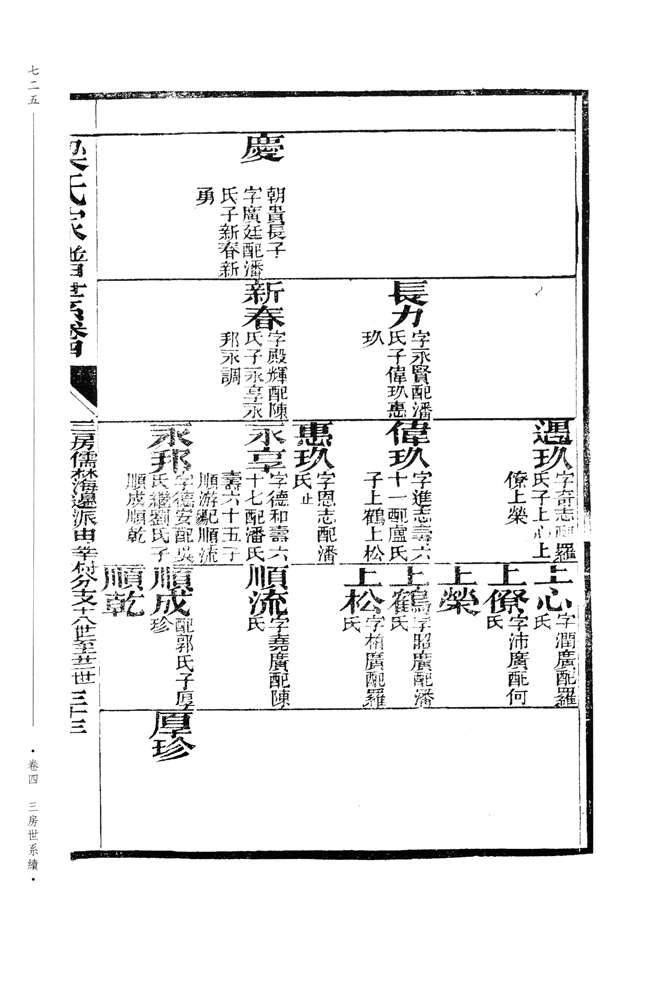 慶
朝貴長子
字廣廷配潘
氏子新春新
勇
長力
字永賢配潘
氏子偉玖惠
玖
新春
字殿輝配陳
氏子永享永
邦永調
遇玖
字奇志配羅
氏子上心上
僚上榮
偉玖
字進志壽六
十一配盧氏
子上鶴上松
惠玖
字恩志配潘
氏止
永享
字德和壽六
十七配潘氏
壽六十五子
順游亂順流
永邦
字德安配吳
氏繼劉氏子
順成順乾
上心
字潤廣配羅
氏
上僚
字沛廣配何
氏
上榮
上鶴
字昭廣配潘
氏
上松
字栢廣配羅
氏
順流
字堯廣配陳
氏
順成
配郭氏子厚
珍
順乾
厚珍
梁氏家譜世系卷四
三房儒林海邊派由莘村分支十八世至廿二世 三十三
七二五
·卷四 三房世系續·